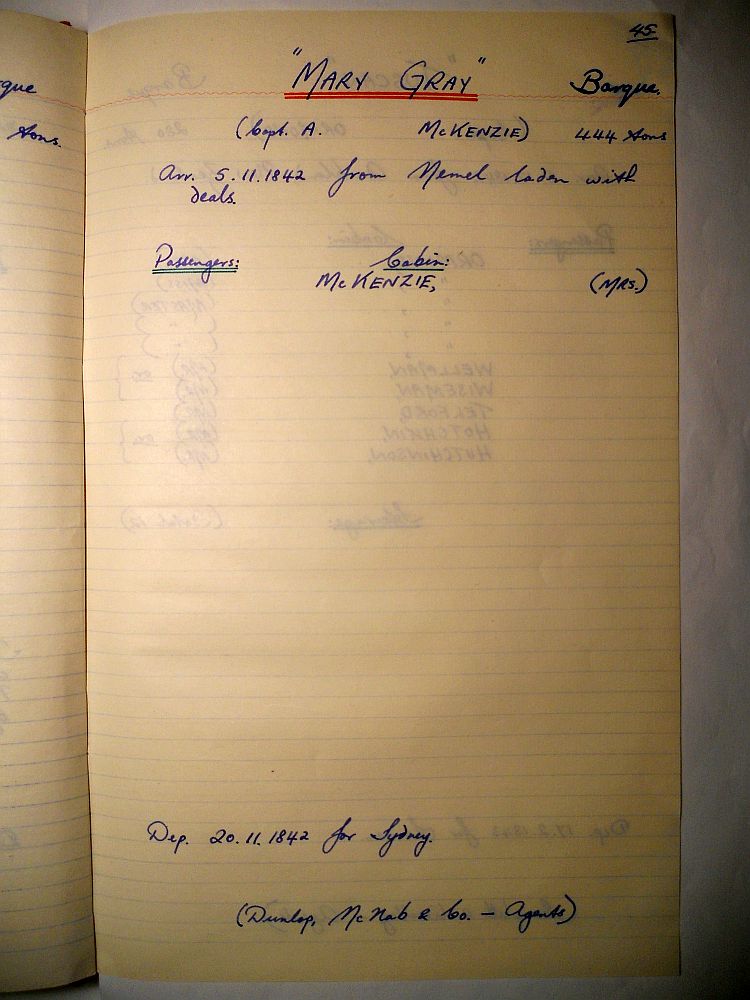 gue
tons.
45
"MARY GRAY" Barque.
(Capt. A. McKENZIE) 444 tons
Arr. 5.11.1842 from Memel laden with
deals.
Passengers: Cabin:
McKENZIE, (MRS.)
Dep. 20.11.1842 for Sydney.
(Dunlop, McNab & Co. – Agents)